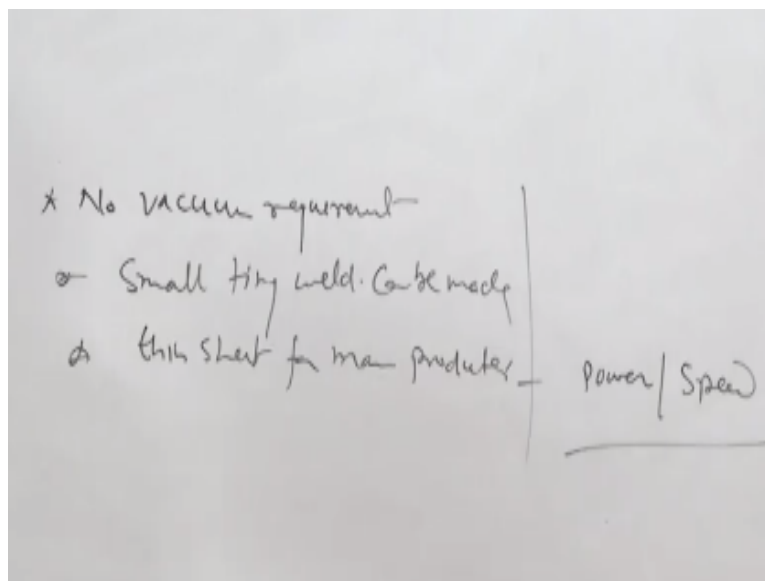 * No vacuum requirement
Small tiny weld. Can be made
thin sheet for mass
Power / Speed